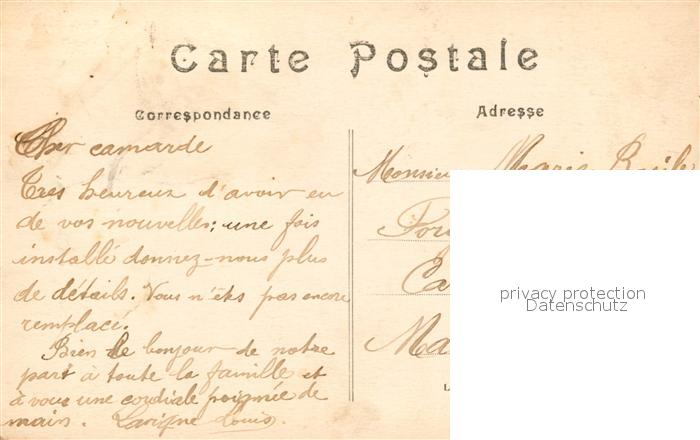 Carte Postale
Correspondance
Adresse
Cher camarde
Très heureux d'avoir eu
de vos nouvelles; une fois
installé donnez-nous plus
de détails. Vous n'êts pas encore
remplacé.
Bien le bonjour de notre
part à toute la famille et
à vous une cordiale poignée de
main. Lavigne Louis.
Monsieur Marie
privacy protection
Datenschutz